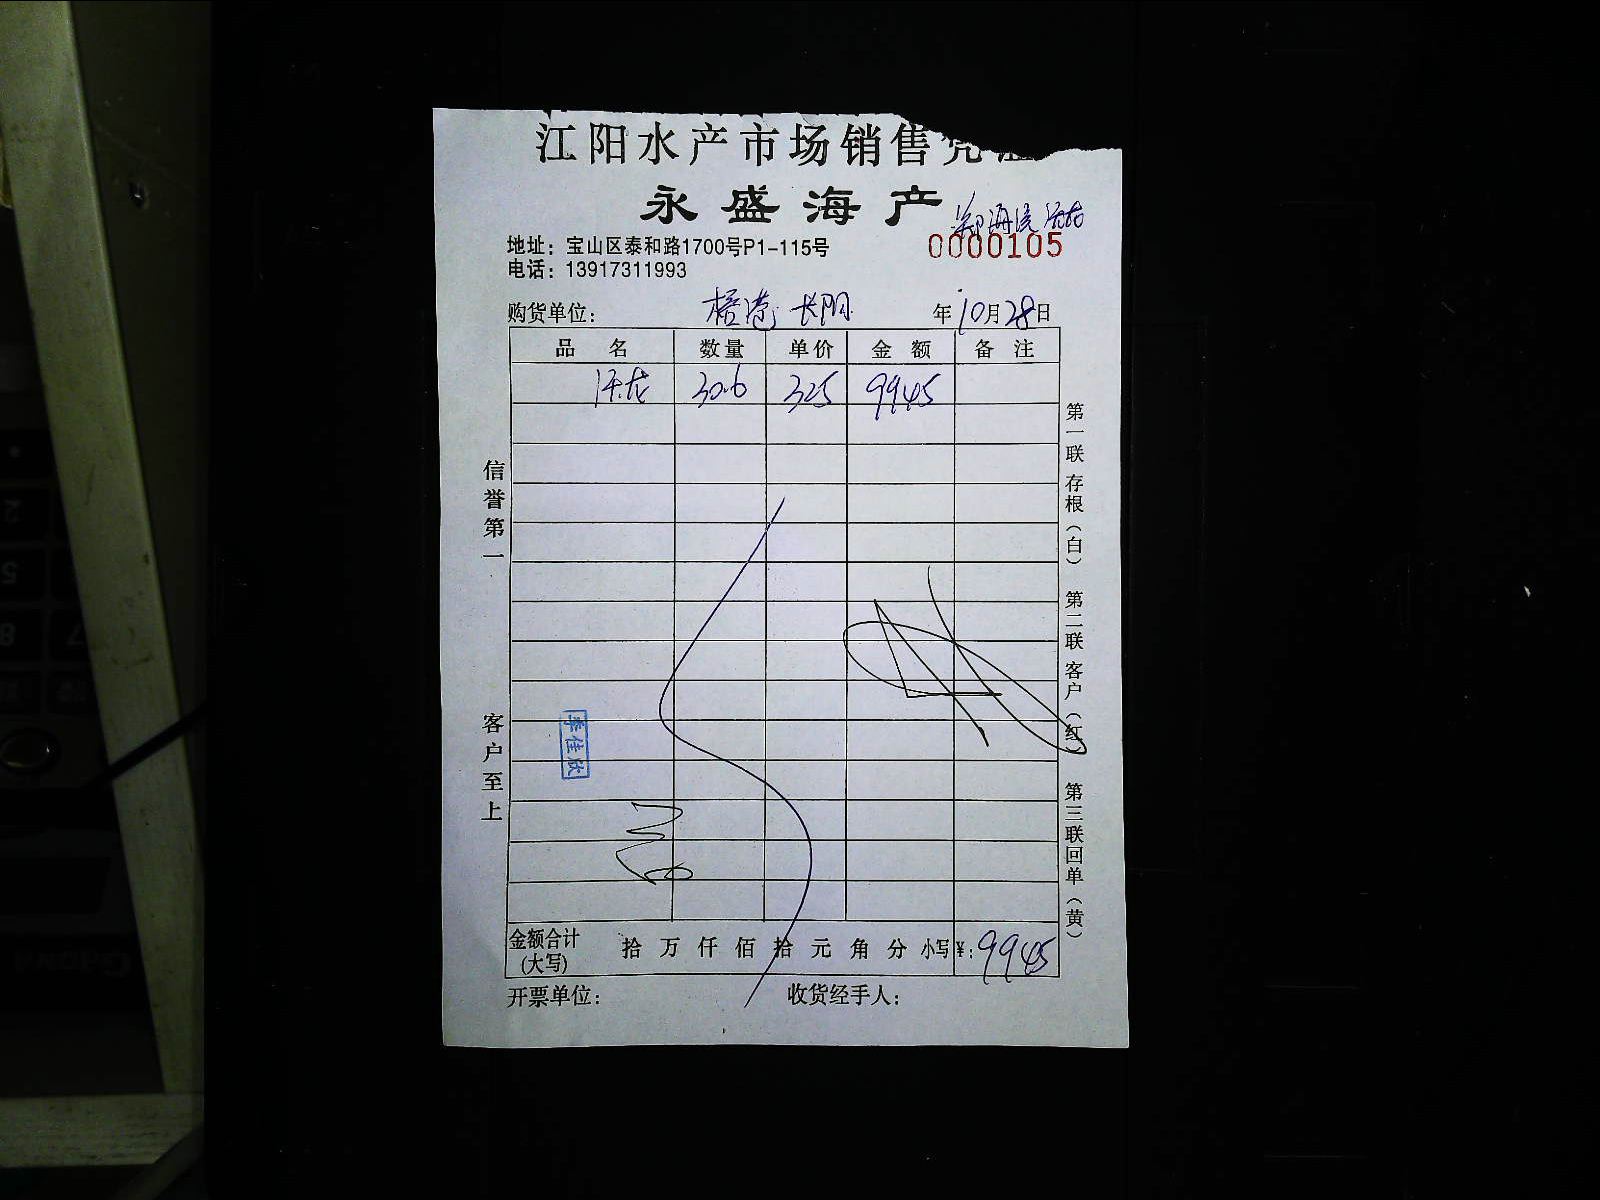 江阳水产市场销售凭证
永盛海产
0000105
地址：宝山区泰和路1700号P1-115号
电话：13917311993
购货单位： 长阳 年10月28日
品 名 数量 单价 金 额 备 注
30.6 325 9945
信誉第一
客户至上
第一联 存根（白） 第二联 客户（红） 第三联 回单（黄）
李佳欣
金额合计（大写） 拾 万 仟 佰 拾 元 角 分 小写￥：9945
开票单位： 收货经手人：